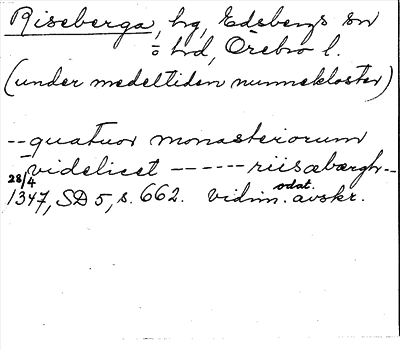 Riseberga, hg, Edsbergs sn
o hd, Örebro l.
(under medeltiden nunnekloster)
--quatuor monasteriorum
videlicet ------riisæbærgh--
28/4 1347, SD 5, s. 662. vidim. odat. avskr.